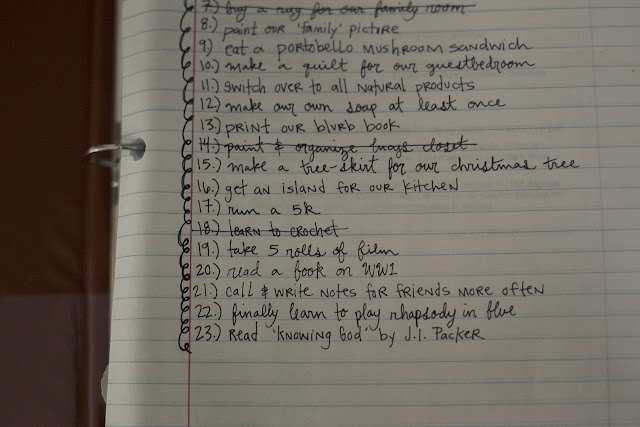 7.) buy a rug for our family room
8.) paint our 'family' picture
9.) eat a portobello mushroom sandwich
10.) make a quilt for our guestbedroom
11.) switch over to all natural products
12.) make our own soap at least once
13.) print our blurb book
14.) paint & organize lucy's closet
15.) make a tree-skirt for our christmas tree
16.) get an island for our kitchen
17.) run a 5k
18.) learn to crochet
19.) take 5 rolls of film
20.) read a book on WW1
21.) call & write notes for friends more often
22.) finally learn to play rhapsody in blue
23.) Read 'Knowing God' by J.I. Packer